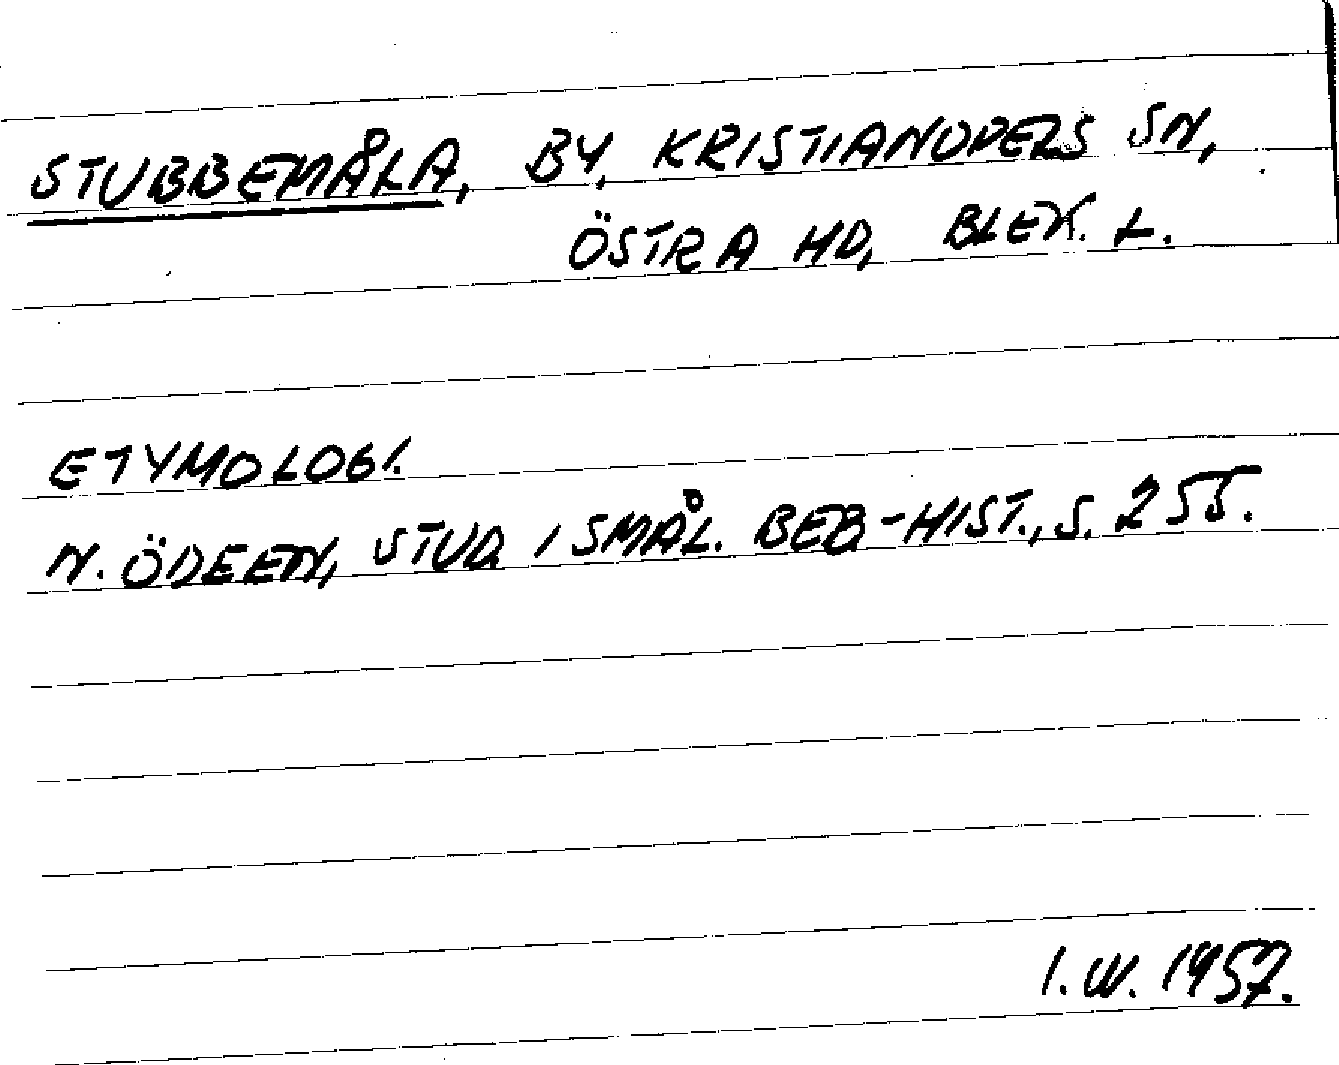 STUBBEMÅLA, BY, KRISTIANOPELS SN,
ÖSTRA HD, BLEK. L.
ETYMOLOGI.
N. ÖDEEN, STUD. I SMÅL. BEB-HIST., S. 255.
I.W. 1957.